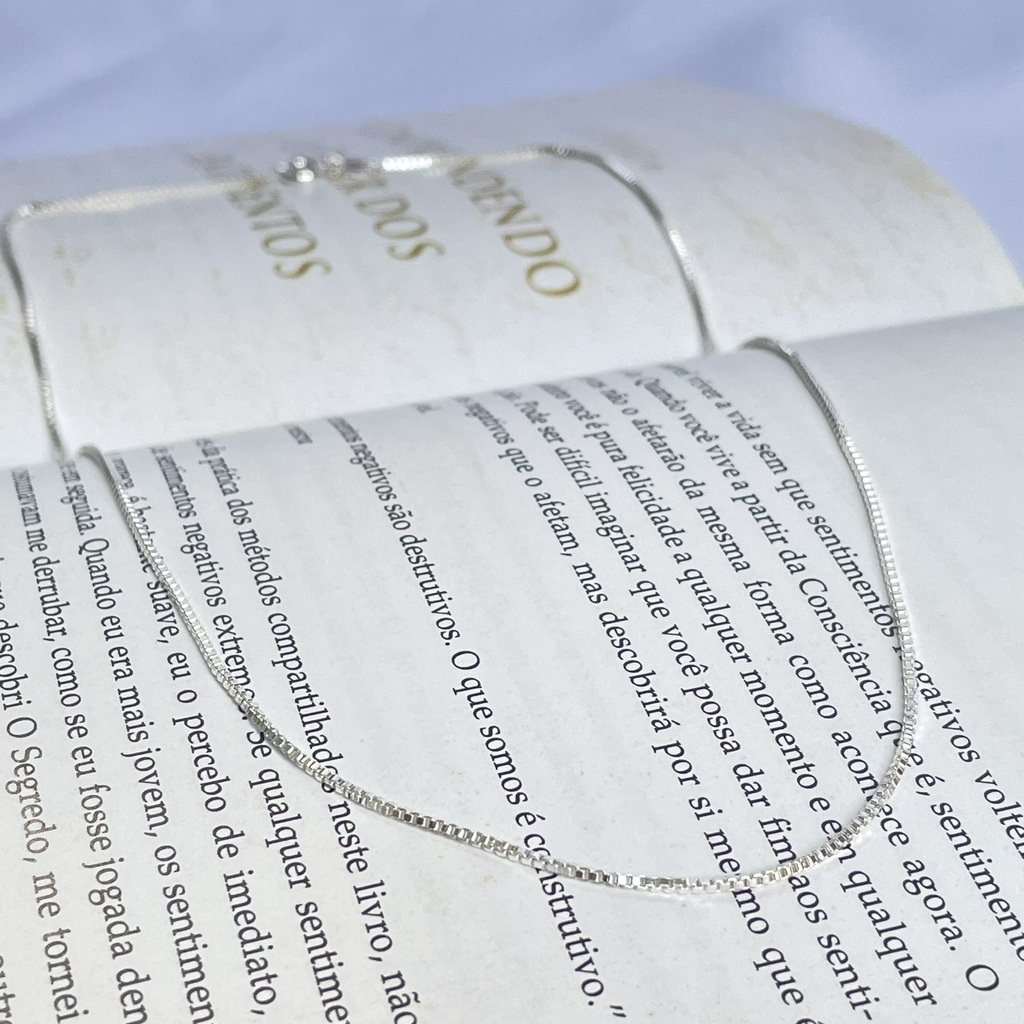 NDENDO
DOS
ENTOS
viver a vida sem que sentimentos negativos volte
Quando você vive a partir da Consciência que é, sentimento
não o afetarão da mesma forma como acontece agora. O
você é pura felicidade a qualquer momento e em qualquer
Pode ser difícil imaginar que você possa dar fim aos senti-
negativos que o afetam, mas descobrirá por si mesmo que é
negativos são destrutivos. O que somos é construtivo.”
da prática dos métodos compartilhados neste livro, não
sentimentos negativos extremos. Se qualquer sentime
é bastante suave, eu o percebo de imediato,
em seguida. Quando eu era mais jovem, os sentimen
costumavam me derrubar, como se eu fosse jogada den
descobri O Segredo, me tornei